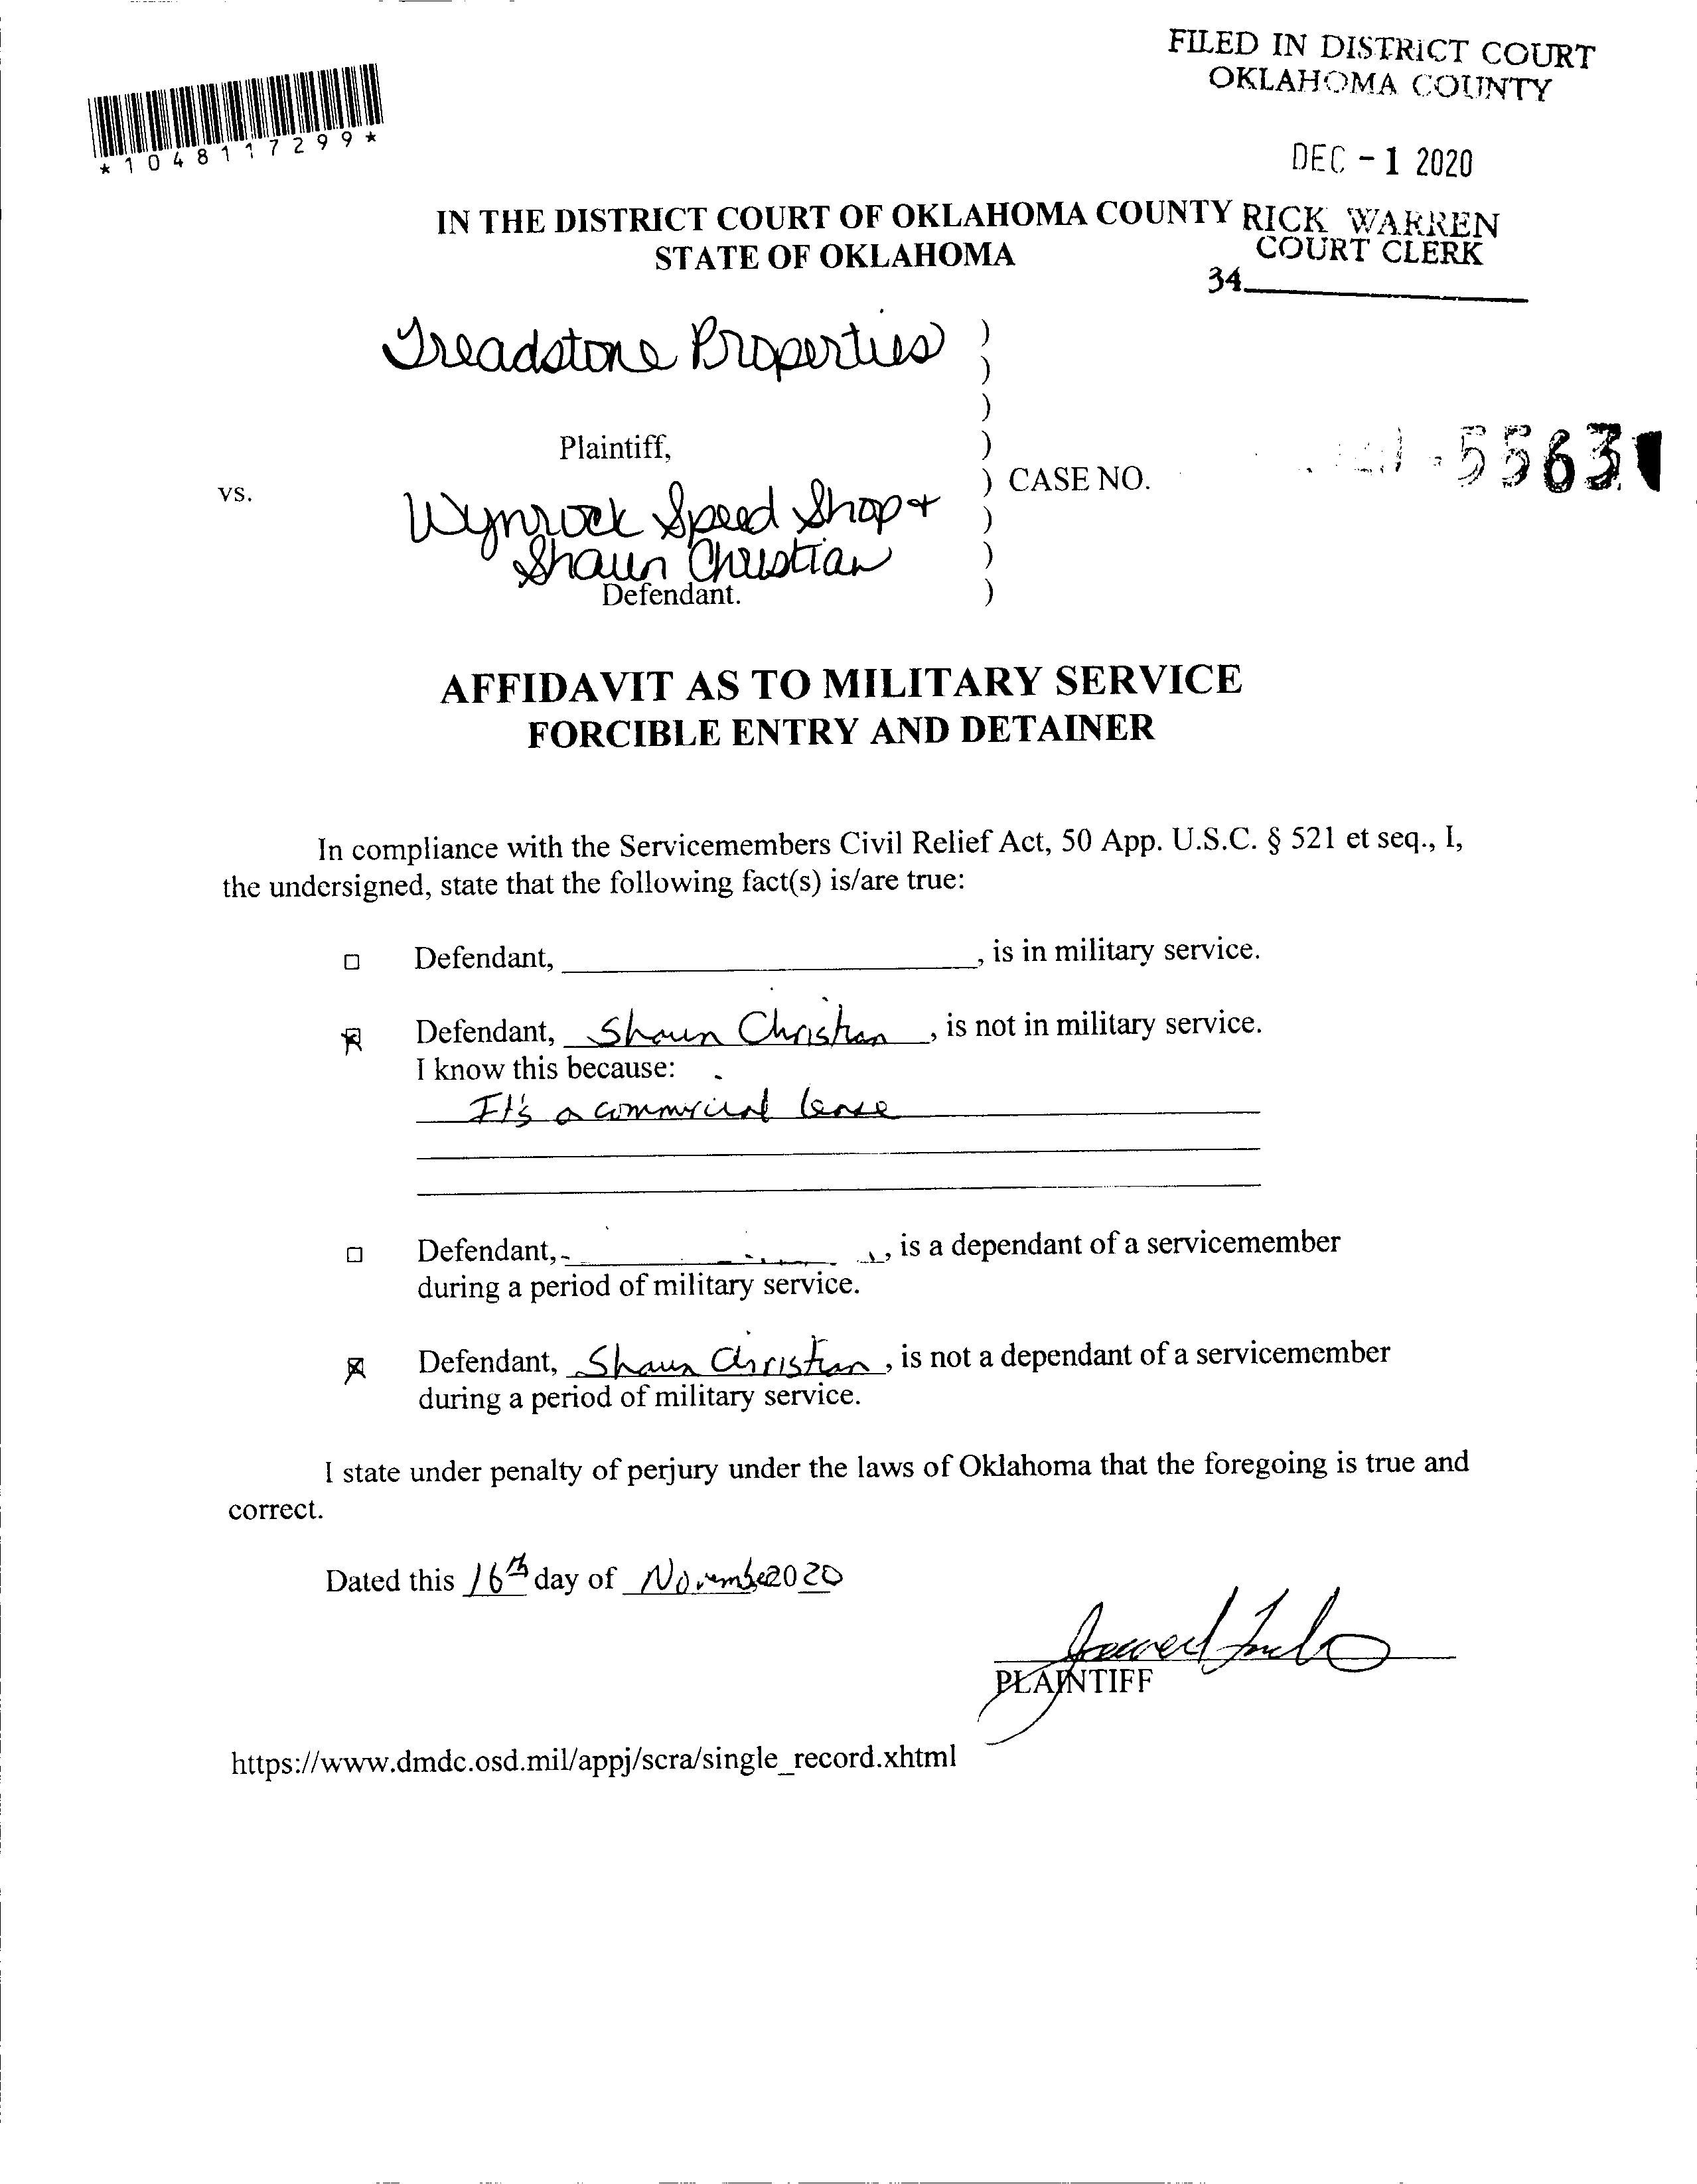 FILED IN DISTRICT COURT
OKLAHOMA COUNTY
*1048117299*
DEC - 1 2020
IN THE DISTRICT COURT OF OKLAHOMA COUNTY
RICK WARREN
STATE OF OKLAHOMA
COURT CLERK
34
Treadstone Properties
)
)
)
Plaintiff,
)
vs.
) CASE NO. -5563
Wynrock Speed Shop +
)
Shaun Christian
)
Defendant.
)
AFFIDAVIT AS TO MILITARY SERVICE
FORCIBLE ENTRY AND DETAINER
In compliance with the Servicemembers Civil Relief Act, 50 App. U.S.C. § 521 et seq., I,
the undersigned, state that the following fact(s) is/are true:
Defendant, , is in military service.
Defendant, Shaun Christian, is not in military service.
I know this because:
It's a commercial lease
Defendant, , is a dependant of a servicemember
during a period of military service.
Defendant, Shaun Christian, is not a dependant of a servicemember
during a period of military service.
I state under penalty of perjury under the laws of Oklahoma that the foregoing is true and
correct.
Dated this 16th day of November 2020
PLAINTIFF
https://www.dmdc.osd.mil/appj/scra/single_record.xhtml